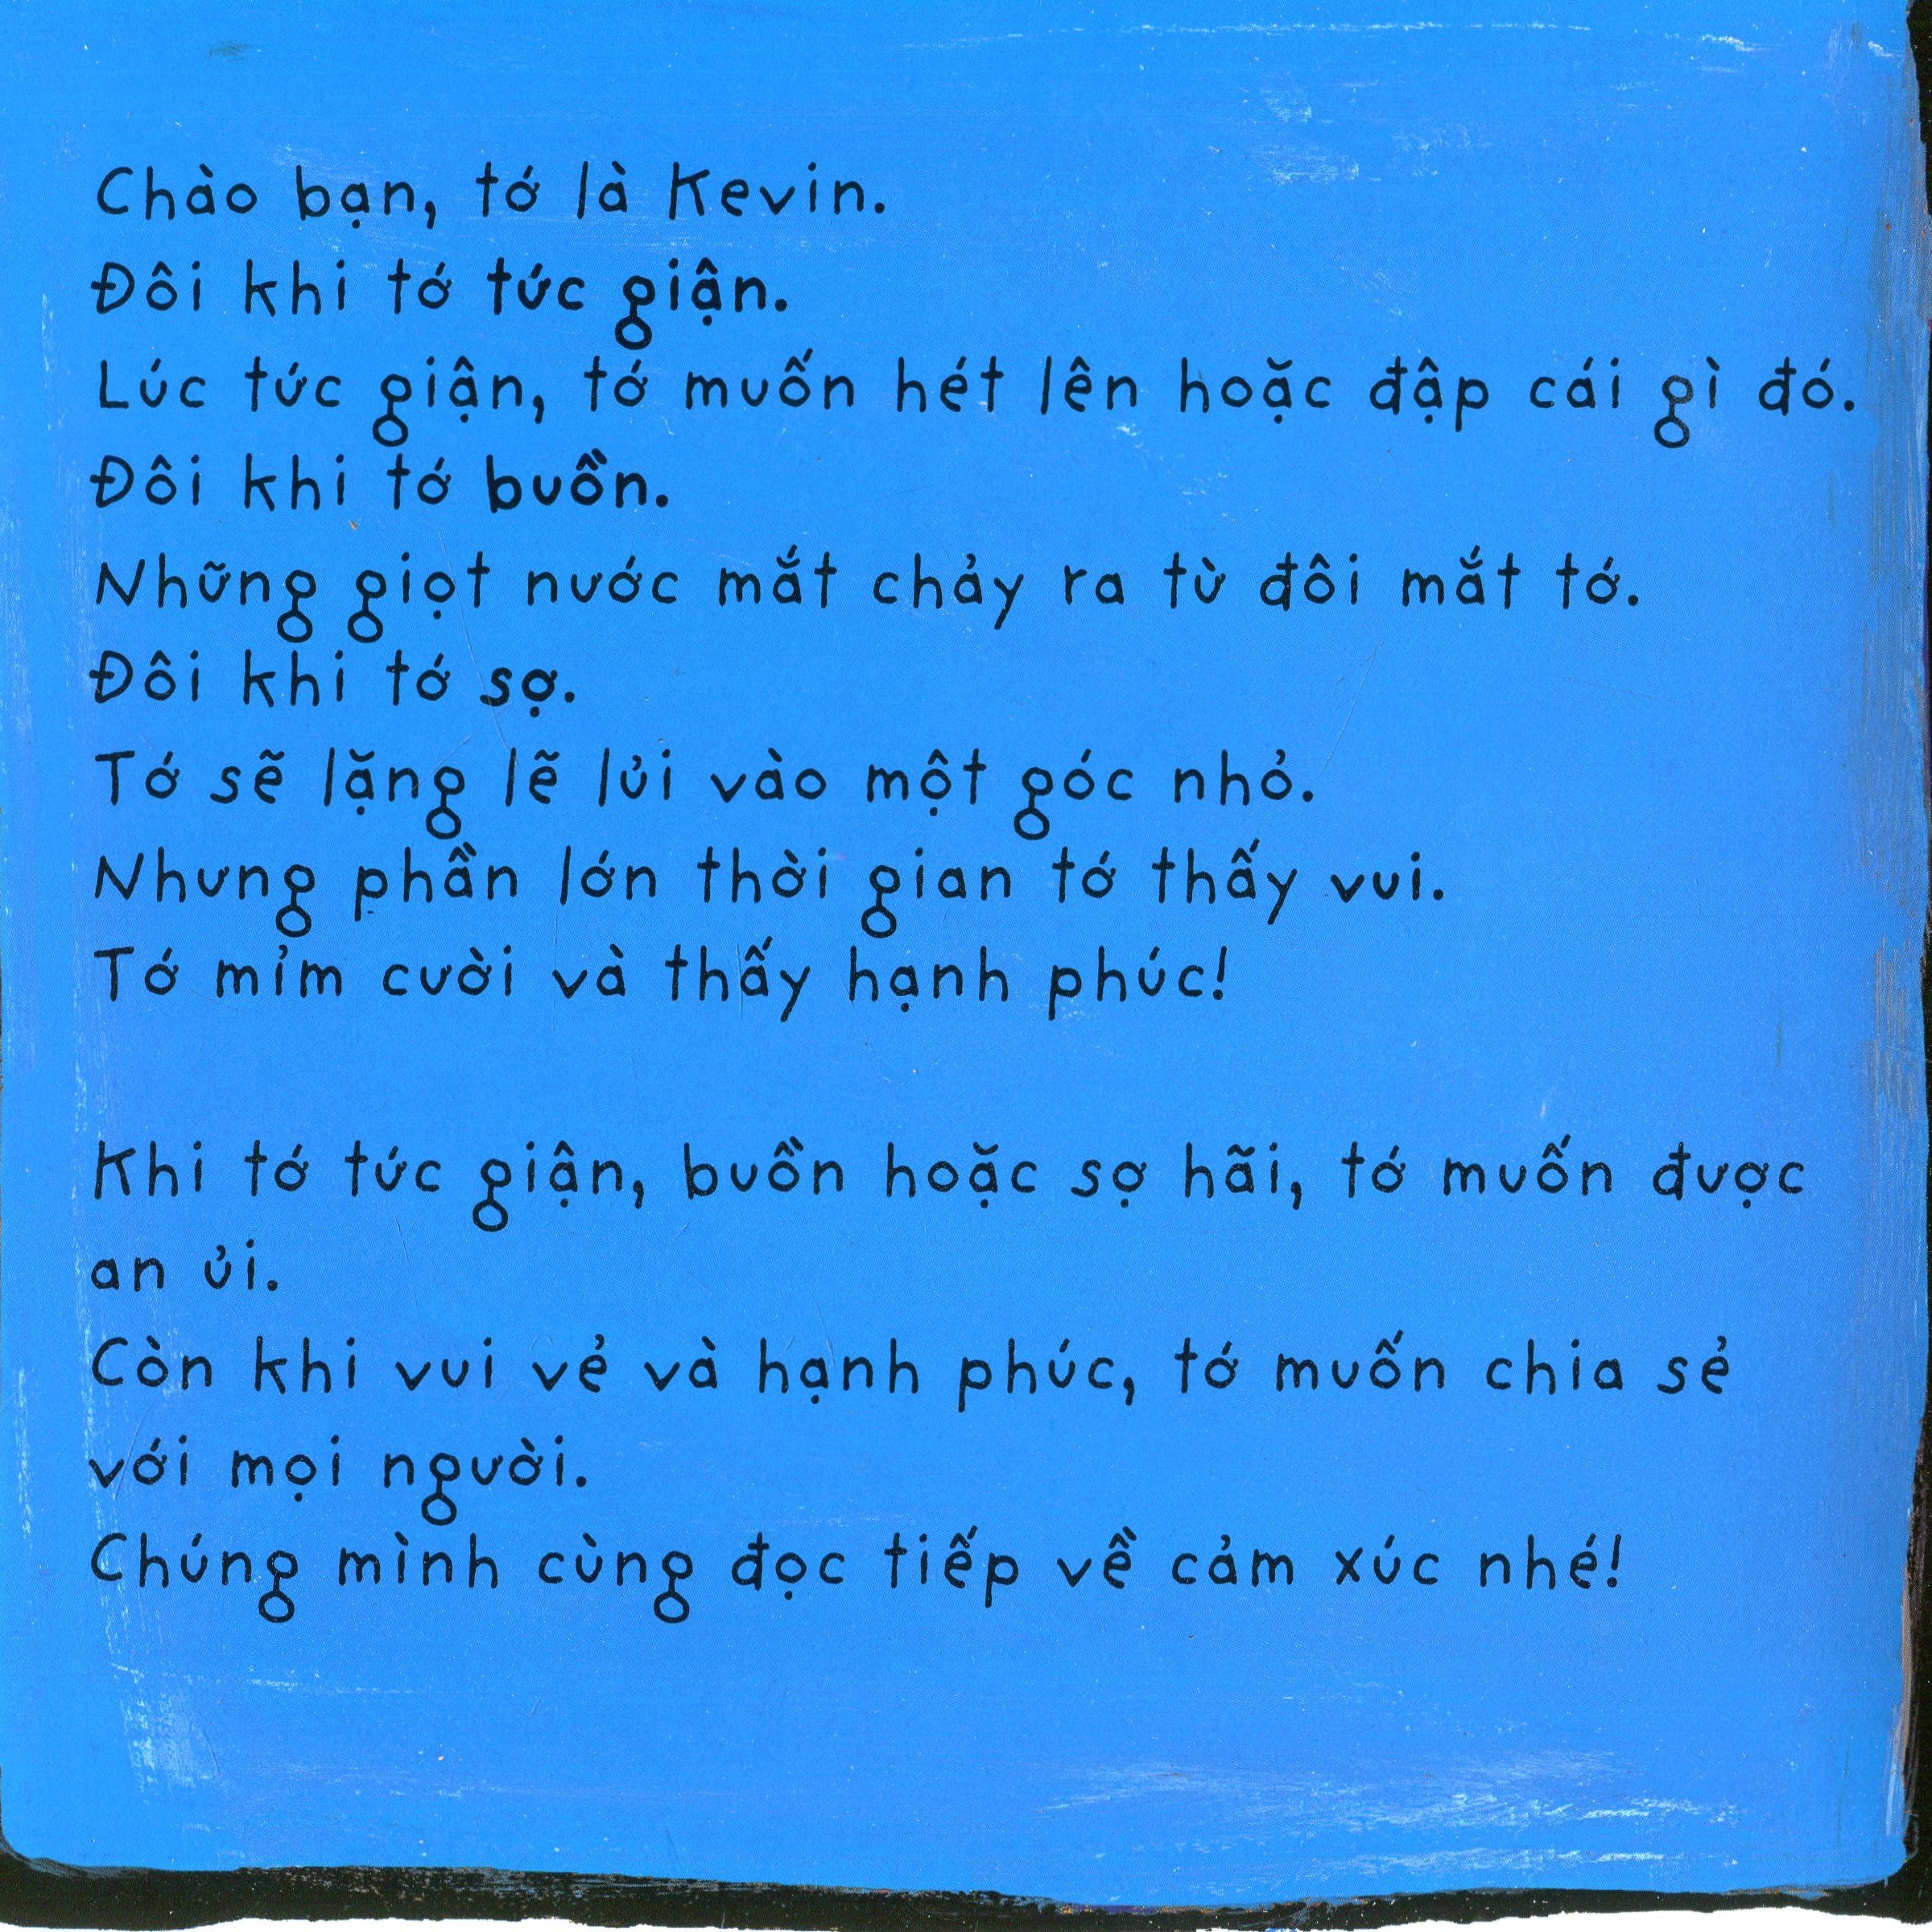 Chào bạn, tớ là Kevin.
Đôi khi tớ tức giận.
Lúc tức giận, tớ muốn hét lên hoặc đập cái gì đó.
Đôi khi tớ buồn.
Những giọt nước mắt chảy ra từ đôi mắt tớ.
Đôi khi tớ sợ.
Tớ sẽ lặng lẽ lủi vào một góc nhỏ.
Nhưng phần lớn thời gian tớ thấy vui.
Tớ mỉm cười và thấy hạnh phúc!
Khi tớ tức giận, buồn hoặc sợ hãi, tớ muốn được
an ủi.
Còn khi vui vẻ và hạnh phúc, tớ muốn chia sẻ
với mọi người.
Chúng mình cùng đọc tiếp về cảm xúc nhé!